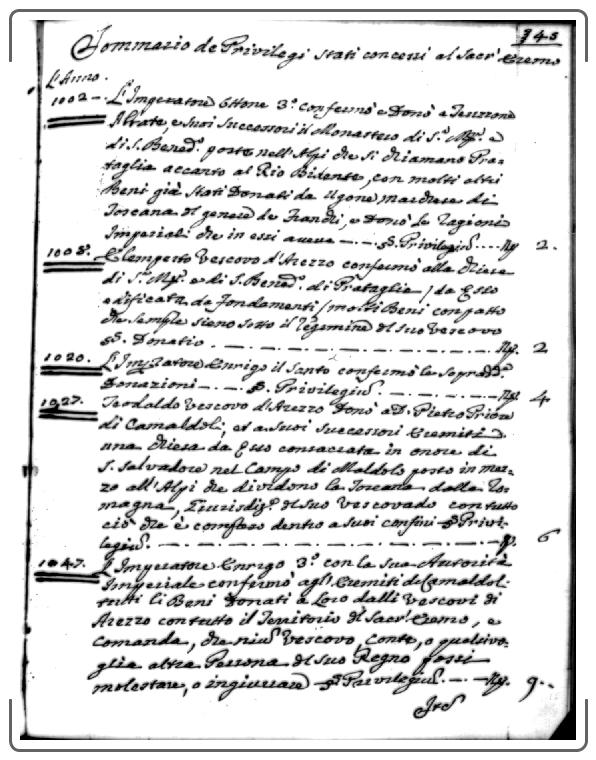 345
Sommario de Privilegi stati concessi al Sacr' Eremo
L'Anno.
1002 — L'Imperatore Ottone 3.º confermò e Donò e Tenzone
Abate, e suoi successori il Monastero di S.ª M.ª e
di S. Bened.º posto nell'Alpi che si chiamano Pra-
taglia accanto al Rio Bidente, con molti altri
Beni già stati Donati da Ugone marchese di
Toscana Il genere de Franchi, e Donò le ragioni
Imperiali che in essi aveva — . — p. Privilegiū .... Nº 2.
1008. Elemperto Vescovo d'Arezzo confermò alla chiesa
di S.ª M.ª e di S. Bened.º di Prataglia / da Esso
edificata da fondamenti / molti Beni con patto
che sempre sieno sotto il regimine del suo Vescovo
p. Donatio . — . — . — . — . — . — Nº. 2
1020. L'Imperatore Enrigo il Santo confermò le sopradd.e
Donazioni — . — p. Privilegiū — . — . — . — Nº. 4
1027. Teodaldo Vescovo d'Arezzo Donò a D. Pietro Priore
di Camaldoli, et a suoi successori Eremiti
una chiesa da Esso consacrata in onore di
S. Salvadore nel Campo di Maldolo posto in mez-
zo all'Alpi che dividono la Toscana dalla Ro-
magna, Giurisdiz.e del suo Vescovado con tutto
ciò che è compreso dentro a suoi confini p. Privi-
legiū. — . — . — . — . — . — . — . — p. 6
1047. L'Imperatore Enrigo 3.º con la sua Autorità
Imperiale confermò agl'Eremiti di Camaldol:
tutti li Beni Donati a Loro dalli Vescovi di
Arezzo con tutto il Territorio del Sacr' Eremo, e
comanda, che niū Vescovo, Conte, o qualsivo-
glia altra Persona del suo Regno possi
molestare, o ingiuriare p. Privilegiū . — . — Nº. 9..